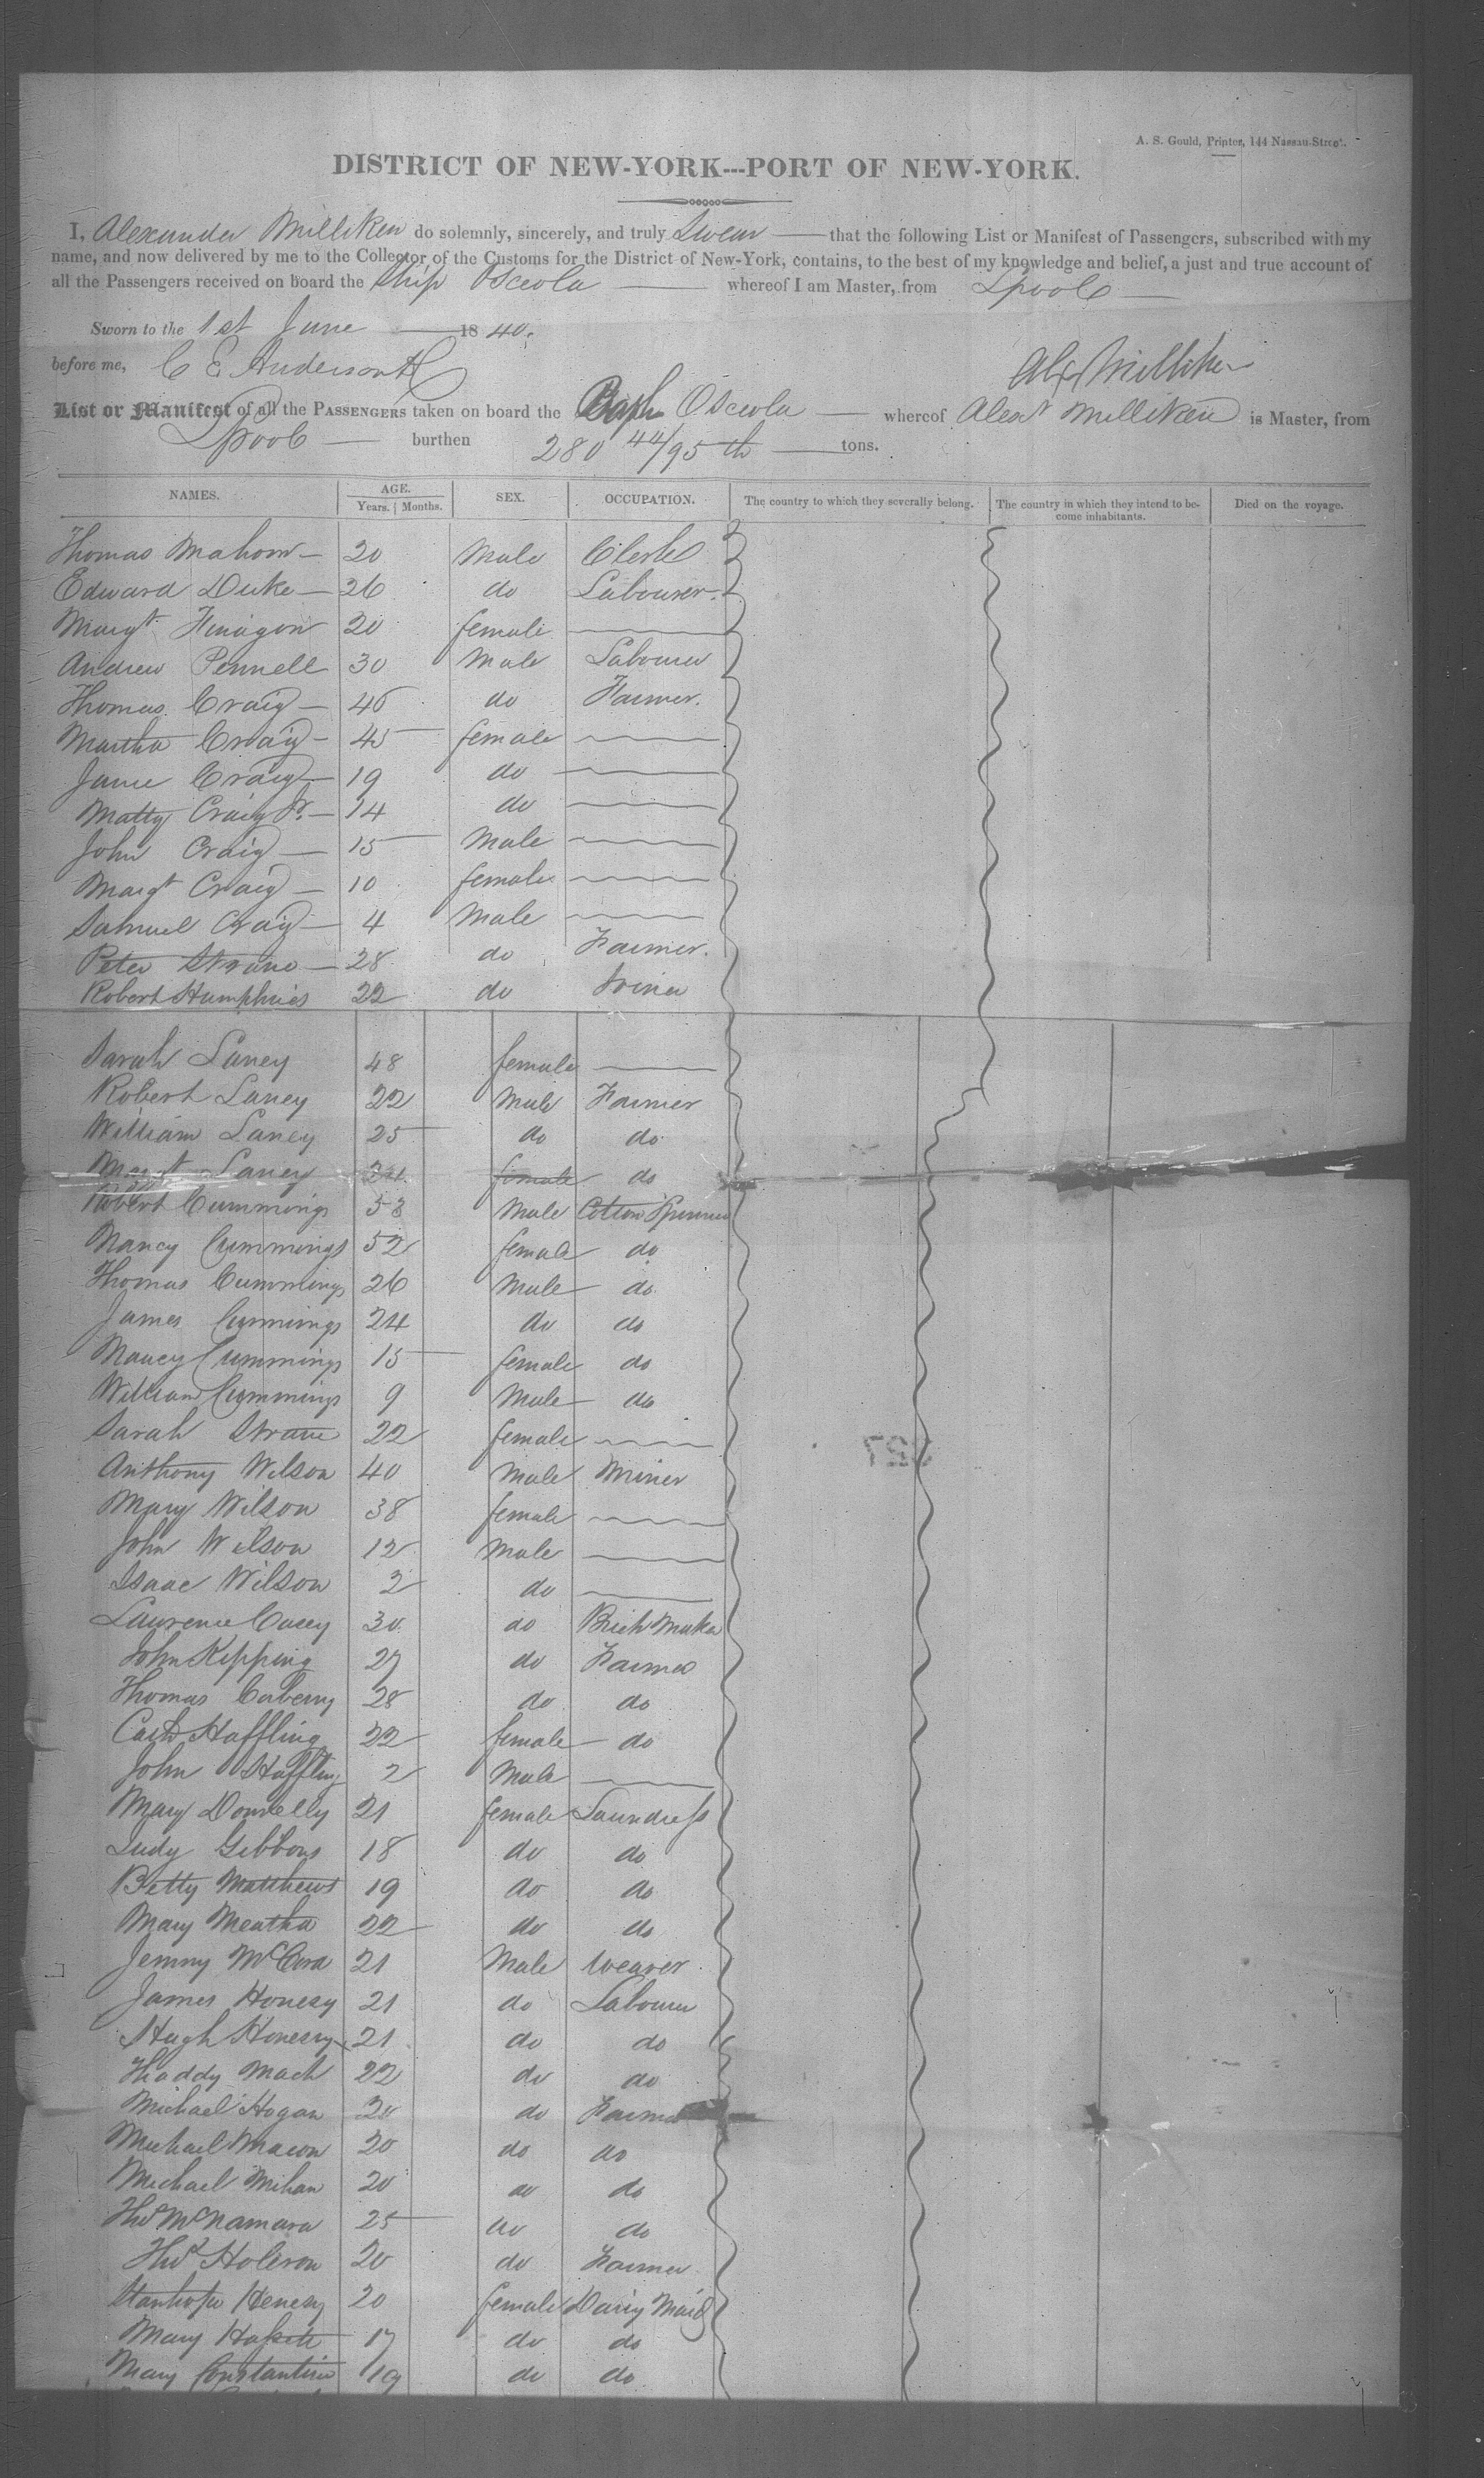 A. S. Gould, Printer, 144 Nassau-Street.
DISTRICT OF NEW-YORK---PORT OF NEW-YORK.
I, Alexander Milliken do solemnly, sincerely, and truly Swear that the following List or Manifest of Passengers, subscribed with my
name, and now delivered by me to the Collector of the Customs for the District of New-York, contains, to the best of my knowledge and belief, a just and true account of
all the Passengers received on board the Ship Osceola whereof I am Master, from Lpool
Sworn to the 1st June 1840.
before me, C E Anderson
Alex Milliken
List or Manifest of all the PASSENGERS taken on board the Osceola whereof Alexr Milliken is Master, from
Lpool burthen 280 44/95th tons.
NAMES. AGE. Years. Months. SEX. OCCUPATION. The country to which they severally belong. The country in which they intend to become inhabitants. Died on the voyage.
Thomas 20 Male Clerk
Edward Duke 26 do Labourer.
Margt Finagon 20 female
Andrew Pennell 30 Male Labourer
Thomas Craig 46 do Farmer.
Martha Craig 45 female
Jane Craig 19 do
Matty Craig Jr. 14 do
John Craig 15 Male
Margt Craig 10 female
Samuel Craig 4 Male
Peter 28 do Farmer.
Robert Humphries 22 do
Sarah Laney 48 female
Robert Laney 22 Male Farmer
William Laney 25 do do
Margt Laney 24 female do
Robert Cummings 53 Male Cotton Spinner
Nancy Cummings 52 female do
Thomas Cummings 26 Male do
James Cummings 24 do do
Nancy Cummings 15 female do
William Cummings 9 Male do
Sarah 22 female
Anthony Wilson 40 Male Miner
Mary Wilson 38 female
John Wilson 12 Male
Isaac Wilson 2 do
Lawrence Casey 30 do Brick Maker
John Kipping 27 do Farmer
Thomas Corberry 28 do do
Cath Haffling 22 female do
John Haffling 2 Male
Mary Donnelly 21 female Laundress
Judy Gibbons 18 do do
Betty Matthews 19 do do
Mary 22 do do
Jemmy 21 Male Weaver
James Honesy 21 do Labourer
Hugh Honesy 21 do do
Thaddy Mach 22 do do
Michael Hogan 20 do Farmer
Michael 20 do do
Michael Mihan 20 do do
Thos McNamara 25 do do
Thos 20 do Farmer
20 female Dairy Maid
Mary 17 do do
Mary Constantine 19 do do